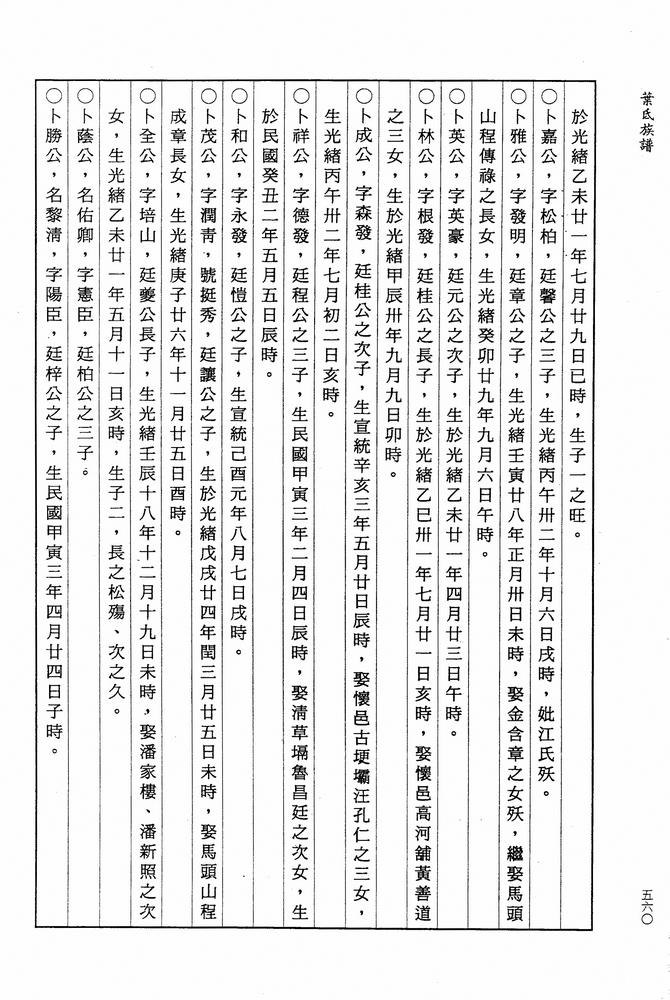 葉氏族譜
於光緒乙未廿一年七月廿九日巳時，生子一之旺。
〇卜嘉公，字松柏，廷馨公之三子，生光緒丙午卅二年十月六日戌時，妣江氏殀。
〇卜雅公，字發明，廷章公之子，生光緒壬寅廿八年正月卅日未時，娶金含章之女殀，繼娶馬頭
山程傳祿之長女，生光緒癸卯廿九年九月六日午時。
〇卜英公，字英豪，廷元公之次子，生於光緒乙未廿一年四月廿三日午時。
〇卜林公，字根發，廷桂公之長子，生於光緒乙巳卅一年七月廿一日亥時，娶懷邑高河舖黃善道
之三女，生於光緒甲辰卅年九月九日卯時。
〇卜成公，字森發，廷桂公之次子，生宣統辛亥三年五月廿日辰時，娶懷邑古埂壩汪孔仁之三女，
生光緒丙午卅二年七月初二日亥時。
〇卜祥公，字德發，廷程公之三子，生民國甲寅三年二月四日辰時，娶淸草塥魯昌廷之次女，生
於民國癸丑二年五月五日辰時。
〇卜和公，字永發，廷愷公之子，生宣統己酉元年八月七日戌時。
〇卜茂公，字潤靑，號挺秀，廷讓公之子，生於光緒戊戌廿四年閏三月廿五日未時，娶馬頭山程
成章長女，生光緒庚子廿六年十一月廿五日酉時。
〇卜全公，字培山，廷夔公長子，生光緒壬辰十八年十二月十九日未時，娶潘家樓、潘新照之次
女，生光緒乙未廿一年五月十一日亥時，生子二，長之松殤、次之久。
〇卜蔭公，名佑卿，字憲臣，廷柏公之三子。
〇卜勝公，名黎淸，字陽臣，廷梓公之子，生民國甲寅三年四月廿四日子時。
五六〇